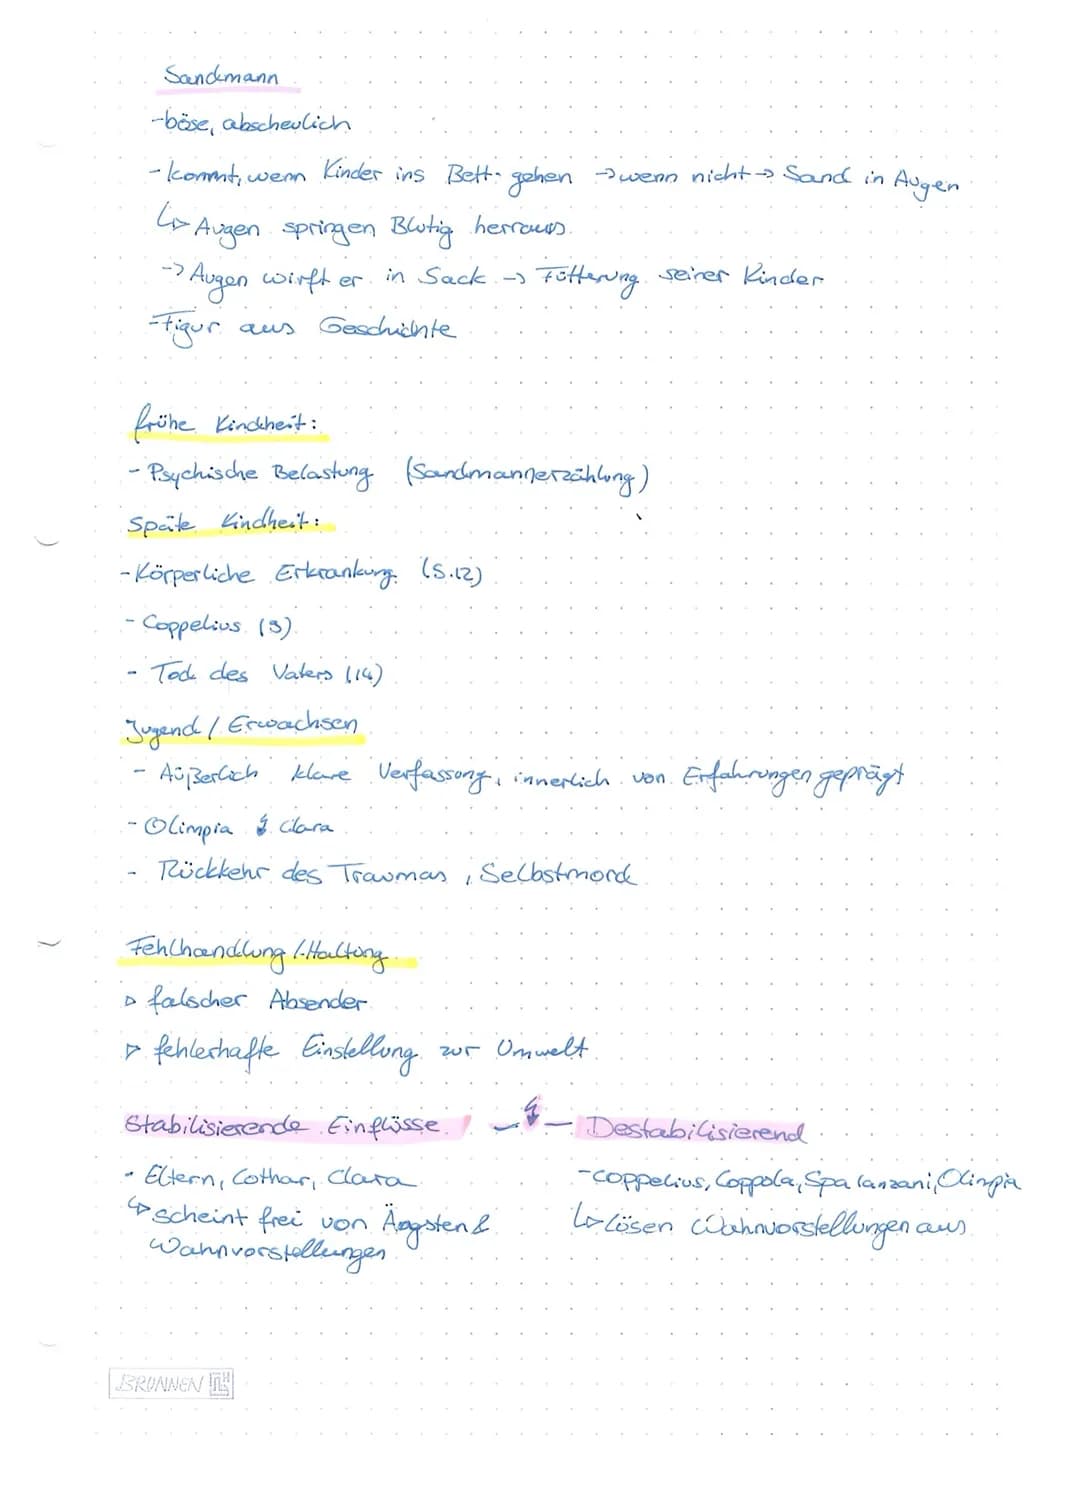 Sandmann
-böse, abscheulich
- kommt, wenn Kinder ins Bett gehen → wenn nicht → Sand in Augen
↳ Augen springen Blutig herraus.
-> Augen wirft er in Sack → Fütterung seiner Kinder
-Figur aus Geschichte
frühe Kindheit:
- Psychische Belastung (Sandmannerzählung)
Späte Kindheit:
- Körperliche Erkrankung (S.12)
- Coppelius (9)
- Tod des Vaters (14)
Jugend / Erwachsen
- Äüßerlich klare Verfassung, innerlich von Erfahrungen geprägt
- Olimpia ↯ Clara
- Rückkehr des Traumas, Selbstmord
Fehlhandlung /-Haltung
▷ falscher Absender
▷ fehlerhafte Einstellung zur Umwelt
Stabilisierende Einflüsse — ↯ — Destabilisierend
- Eltern, Lothar, Clara -Coppelius, Coppola, Spalanzani, Olimpia
↳ scheint frei von Ängsten & ↳ Lösen Wahnvorstellungen aus
Wahnvorstellungen
BRUNNEN